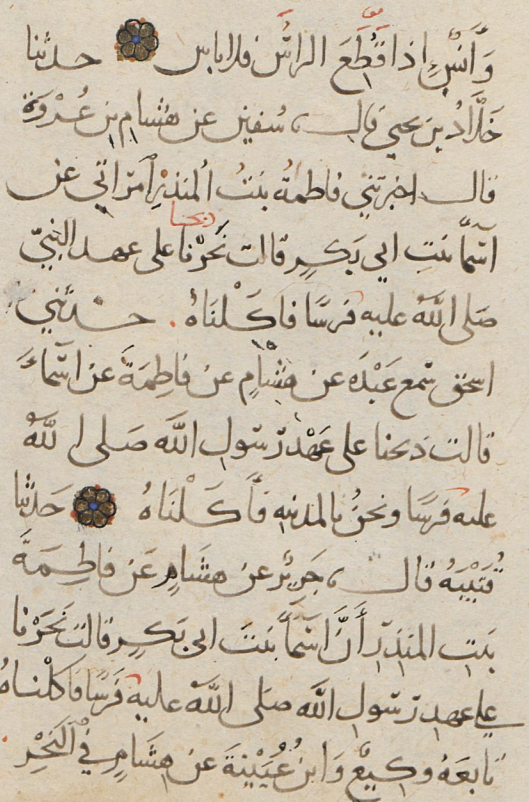 وَأَنَسٌ إذا قُطِعَ الراسُ فلا باس حدثنا
خَلَّادُ بن يحيى قال ، سُفين عن هشام بن عُرْوَة
قال اخبرَتني فاطمةُ بنتُ المنذرِ امرَاتي عن
ذبحنا
اَسْمَآ بنتِ ابي بَكرٍ قالت نَحَرْنا على عهد النبيّ
صَلى اللّهُ عليه فرسًا فاكَلْنَاهُ . حدثني
اسحق سَمع عَبْدَه عن هشامٍ عن فاطِمَةَ عن اسْماءَ
قالت ذبحنا على عَهْد رَسُول اللَّه صَلى اللّهُ
عليه فرسًا ونحنُ بالمدينه فاَكَلْنَاهُ حَدثنا
قُتَيْبَهُ قال ، جَرِيْرٌ عن هشَامٍ عَن فاطِمَةَ
بنتِ المنذر أَنَّ اسْمَآ بنتَ ابى بَكرٍ قالت نَحَرْنا
على عهد رَسُول اللَّه صلى اللّهُ عليه فَرَسًا فاكلْناهُ
تابعَهُ وكيعٌ وَابنُ عُيَيْنةَ عن هشَامٍ في النَحْرِ